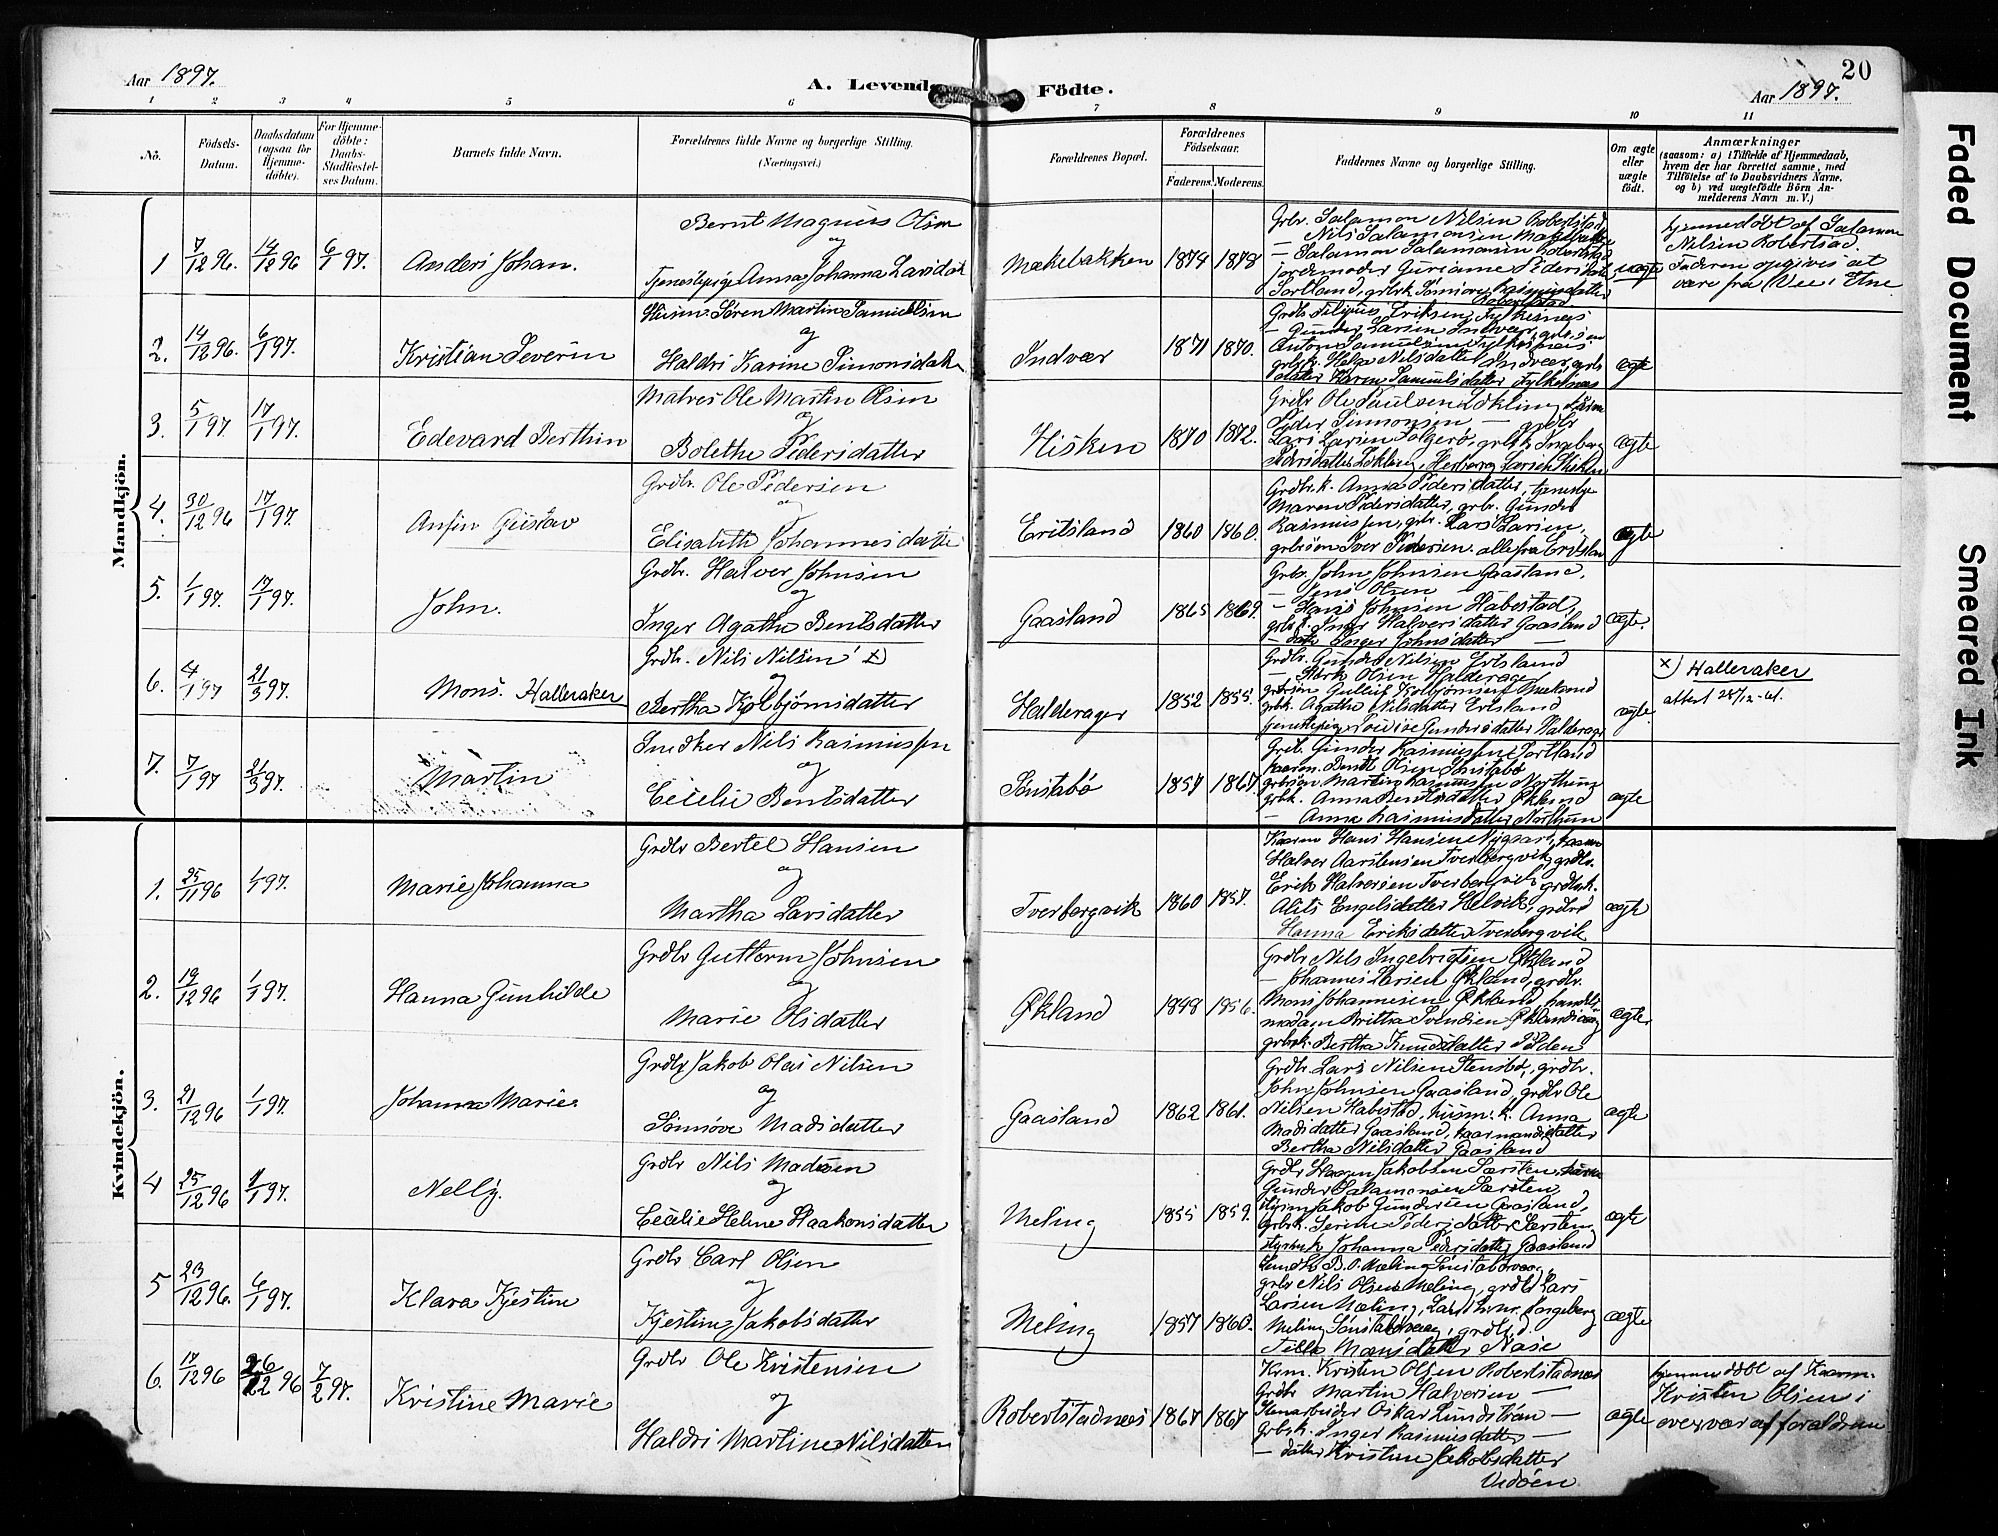 Aar 1897. A. Levende Fødte. Aar 1897. 20
1 2 3 4 5 6 7 8 9 10 11
No. Födsels-Datum. Daabsdatum (ogsaa for Hjemme-döbte). For Hjemme-döbte: Daabs-Stadfæstel-ses Datum. Barnets fulde Navn. Forældrenes fulde Navne og borgerlige Stilling. (Næringsvei.) Forældrenes Bopæl. Forældrenes Födselsaar. Faderens. Moderens. Faddernes Navne og borgerlige Stilling. Om ægte eller uægte födt. Anmærkninger (saasom: a) i Tilfælde af Hjemmedaab, hvem der har forrettet samme, med Tilföielse af to Daabsvidners Navne. og b) ved uægtefödte Börn An-melderens Navn m. V.)
Mandkjön.
1 7/12 96. 14/12 96 6/1 97. Anders Johan. Bernt Magnus Olsen
og
Tjenestepige Anna Johanna Larsdat
Mækebakken 1874 1878
Grbr. Salamon Nilsen Robertstad
— Nils Salamonsen Mækebakke
— Salamon Salamonsen Robertstad
jordemoder Gurianne Pedersdatter
Sortland, grbrk
Robertstad.
uægte
hjemmedöbt af Salamon
Nilsen Robertstad.
Faderen opgives at
være fra Vee i Etne
2. 14/12 96. 6/1 97. Kristian Severin
Husm. Sören Martin Samuelsen
og
Haldri Karine Simonsdatter
Indvær 1871 1870.
Eriksen Fylkesnes
— Gunder Larsen Indvær
Anton Samuelsen Fylkesnes
Nilsdatter Indvær
datter Karen Samuelsdatter Fylkesnes
ægte
3. 5/1 97. 17/1 97. Edevard Berthin
Matros Ole Martin Olsen
og
Bolethe Pedersdatter
Hisken 1870 1872.
Grdbr Ole Paulsen Lökling
Peder Simonsen — grdbr
Lars Larsen Folgerö, grbrk Ingeborg
Pedersdatter Lökling
ægte
4. 30/12 96 17/1 97. Anfin Gustav
Grdbr. Ole Pedersen
og
Elisabeth Johannesdatter
Eritsland 1860 1860.
Grdbr.k. Anna Pedersdatter, tjenestepge
Maren Pedersdatter, grbr. Gunder
Rasmussen, grbr. Lars Larsen,
grbrsön Iver Pedersen. alle fra Eritsland
ægte
5. 1/1 97. 17/1 97. John.
Grdbr. Halver Johnsen
og
Inger Agathe Bentsdatter
Gaasland 1865 1869.
Grbr. John Johnsen Gaasland,
— Jens Olsen —
— Hans Johnsen Habestad,
grbrk. Inger Halversdatter Gaasland
— datr Inger Johnsdatter —
ægte.
6. 4/1 97 21/3 97. Mons. Halleraker
Grdbr. Nils Nilsen x)
og
Bertha Kolbjörnsdatter
Halderager 1852 1855.
Grdbr. Gunder Nilsen Ertsland
— Störk Olsen Halderager
grbrsön Gulleif Kolbjörnsen
grbk. Agathe Nilsdatter Ertsland
Gundersdatter Halderager
ægte.
x) Halleraker
attest 28/12-41.
7. 7/1 97 21/3 97. Martin
Snedker Nils Rasmussen
og
Cecelie Bentsdatter
Sönstabö 1857 1867.
Grdb. Gunder Rasmussen Sortland
kaarm. Bendt Olsen Sönstabö
grbrsön Martin Rasmussen Northun
grbk. Anna Bentsdatter Økland
— Anna Rasmusdatter Northun
ægte
Kvindekjön.
1. 25/11 96 1/1 97. Marie Johanna
Grdbr Bertel Hansen
og
Martha Larsdatter
Tverborgvik 1860 1857.
Kaarm Hans Hansen Nygaard, kaarm
Halver Aarslensen Tverborgvik, grdbr.
Erik Halversen Tverborgvik, grdbrk.
Alits Engelsdatter Helvik, grdbrd
Hanna Eriksdatter Tverborgvik
ægte
2. 19/12 96 1/1 97. Hanna Gunhilde
Grdbr Guttorm Johnsen
og
Marie Olsdatter
Økland 1848 1856.
Grdbr Nils Ingebrigtsen Økland
— Johannes Larsen Økland, grdbr.
Mons Johannesen Økland, handels-
madam Britha Svendsen Øklandsvaag
grbrk. Bertha Knudsdatter Polden
ægte
3. 21/12 96 1/1 97. Johanna Marie.
Grdbr Jakob Olai Nilsen
og
Sönnöve Madsdatter
Gaasland 1862 1861.
Grdbr. Lars Nilsen Stensbö, grdbr.
John Johnsen Gaasland, grdbr Ole
Nilsen Habestad, husm.k. Anna
Madsdatter Gaasland, kaarmandsdatter
Bertha Nilsdatter Gaasland
ægte
4 25/12 96 1/1 97. Nelly.
Grdbr Nils Madsen
og
Cecelie Helene Haakonsdatter
Meling 1855 1859.
Grdbr Haagen Jakobsen Særsten
Gunder Salamonsen Særsten
Jakob Gundersen Gaasland,
Grbrk. Serine Pedersdatter Særsten
Johanna Pedersdatter Gaasland
ægte
5 23/12 96. 6/1 97. Klara Kjestine
Grdbr Carl Olsen
og
Kjestine Jakobsdatter
Meling 1857 1860.
B. O. Meling Sönstabövaag,
grbr Nils Olsen Meling, grdbr Lars
Larsen Meling, Ingeborg
Meling Sönstabövaag, grdbr.d.
Monsdatter Næse
ægte
6. 17/12 96 26/12 96 7/2 97. Kristine Marie
Grdbr Ole Kristensen
og
Haldri Martine Nilsdatter
Robertstadnæs 1867 1867
Krm. Kristen Olsen Robertstadnæs
Grdbr Martin Halversen —
Stenarbeider Oskar Lundström —
Grbrk. Inger Rasmusdatter —
— datter Kristine Jakobsdatter
Vedöen
ægte
hjemmedöbt af Kaarm.
Kristen Olsen i
overvær af forældrene
Faded Document
Smeared Ink